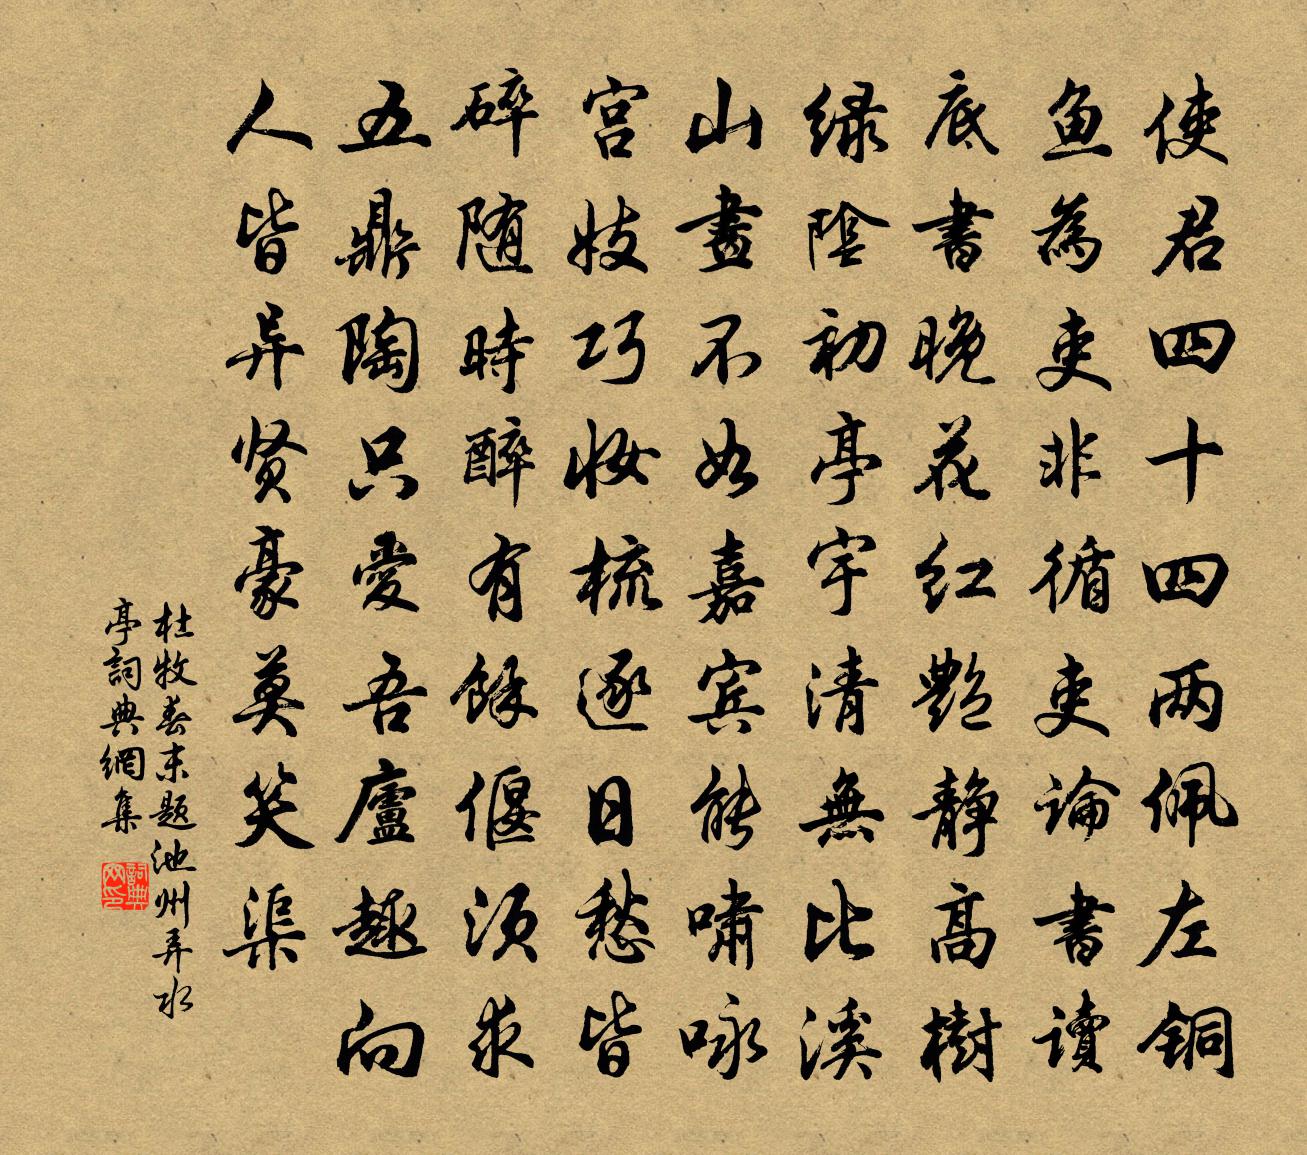 使君四十四两佩左铜
鱼為吏非循吏論書讀
底書晚花红艶静高樹
绿陰初亭宇清無比溪
山畫不如嘉宾能嘯咏
宫妓巧妆梳逐日愁皆
碎随時醉有餘偃须求
五鼎陶只愛吾廬趣向
人皆异贤豪莫笑渠
杜牧春末题池州弄水
亭詞典網集
詞典网印